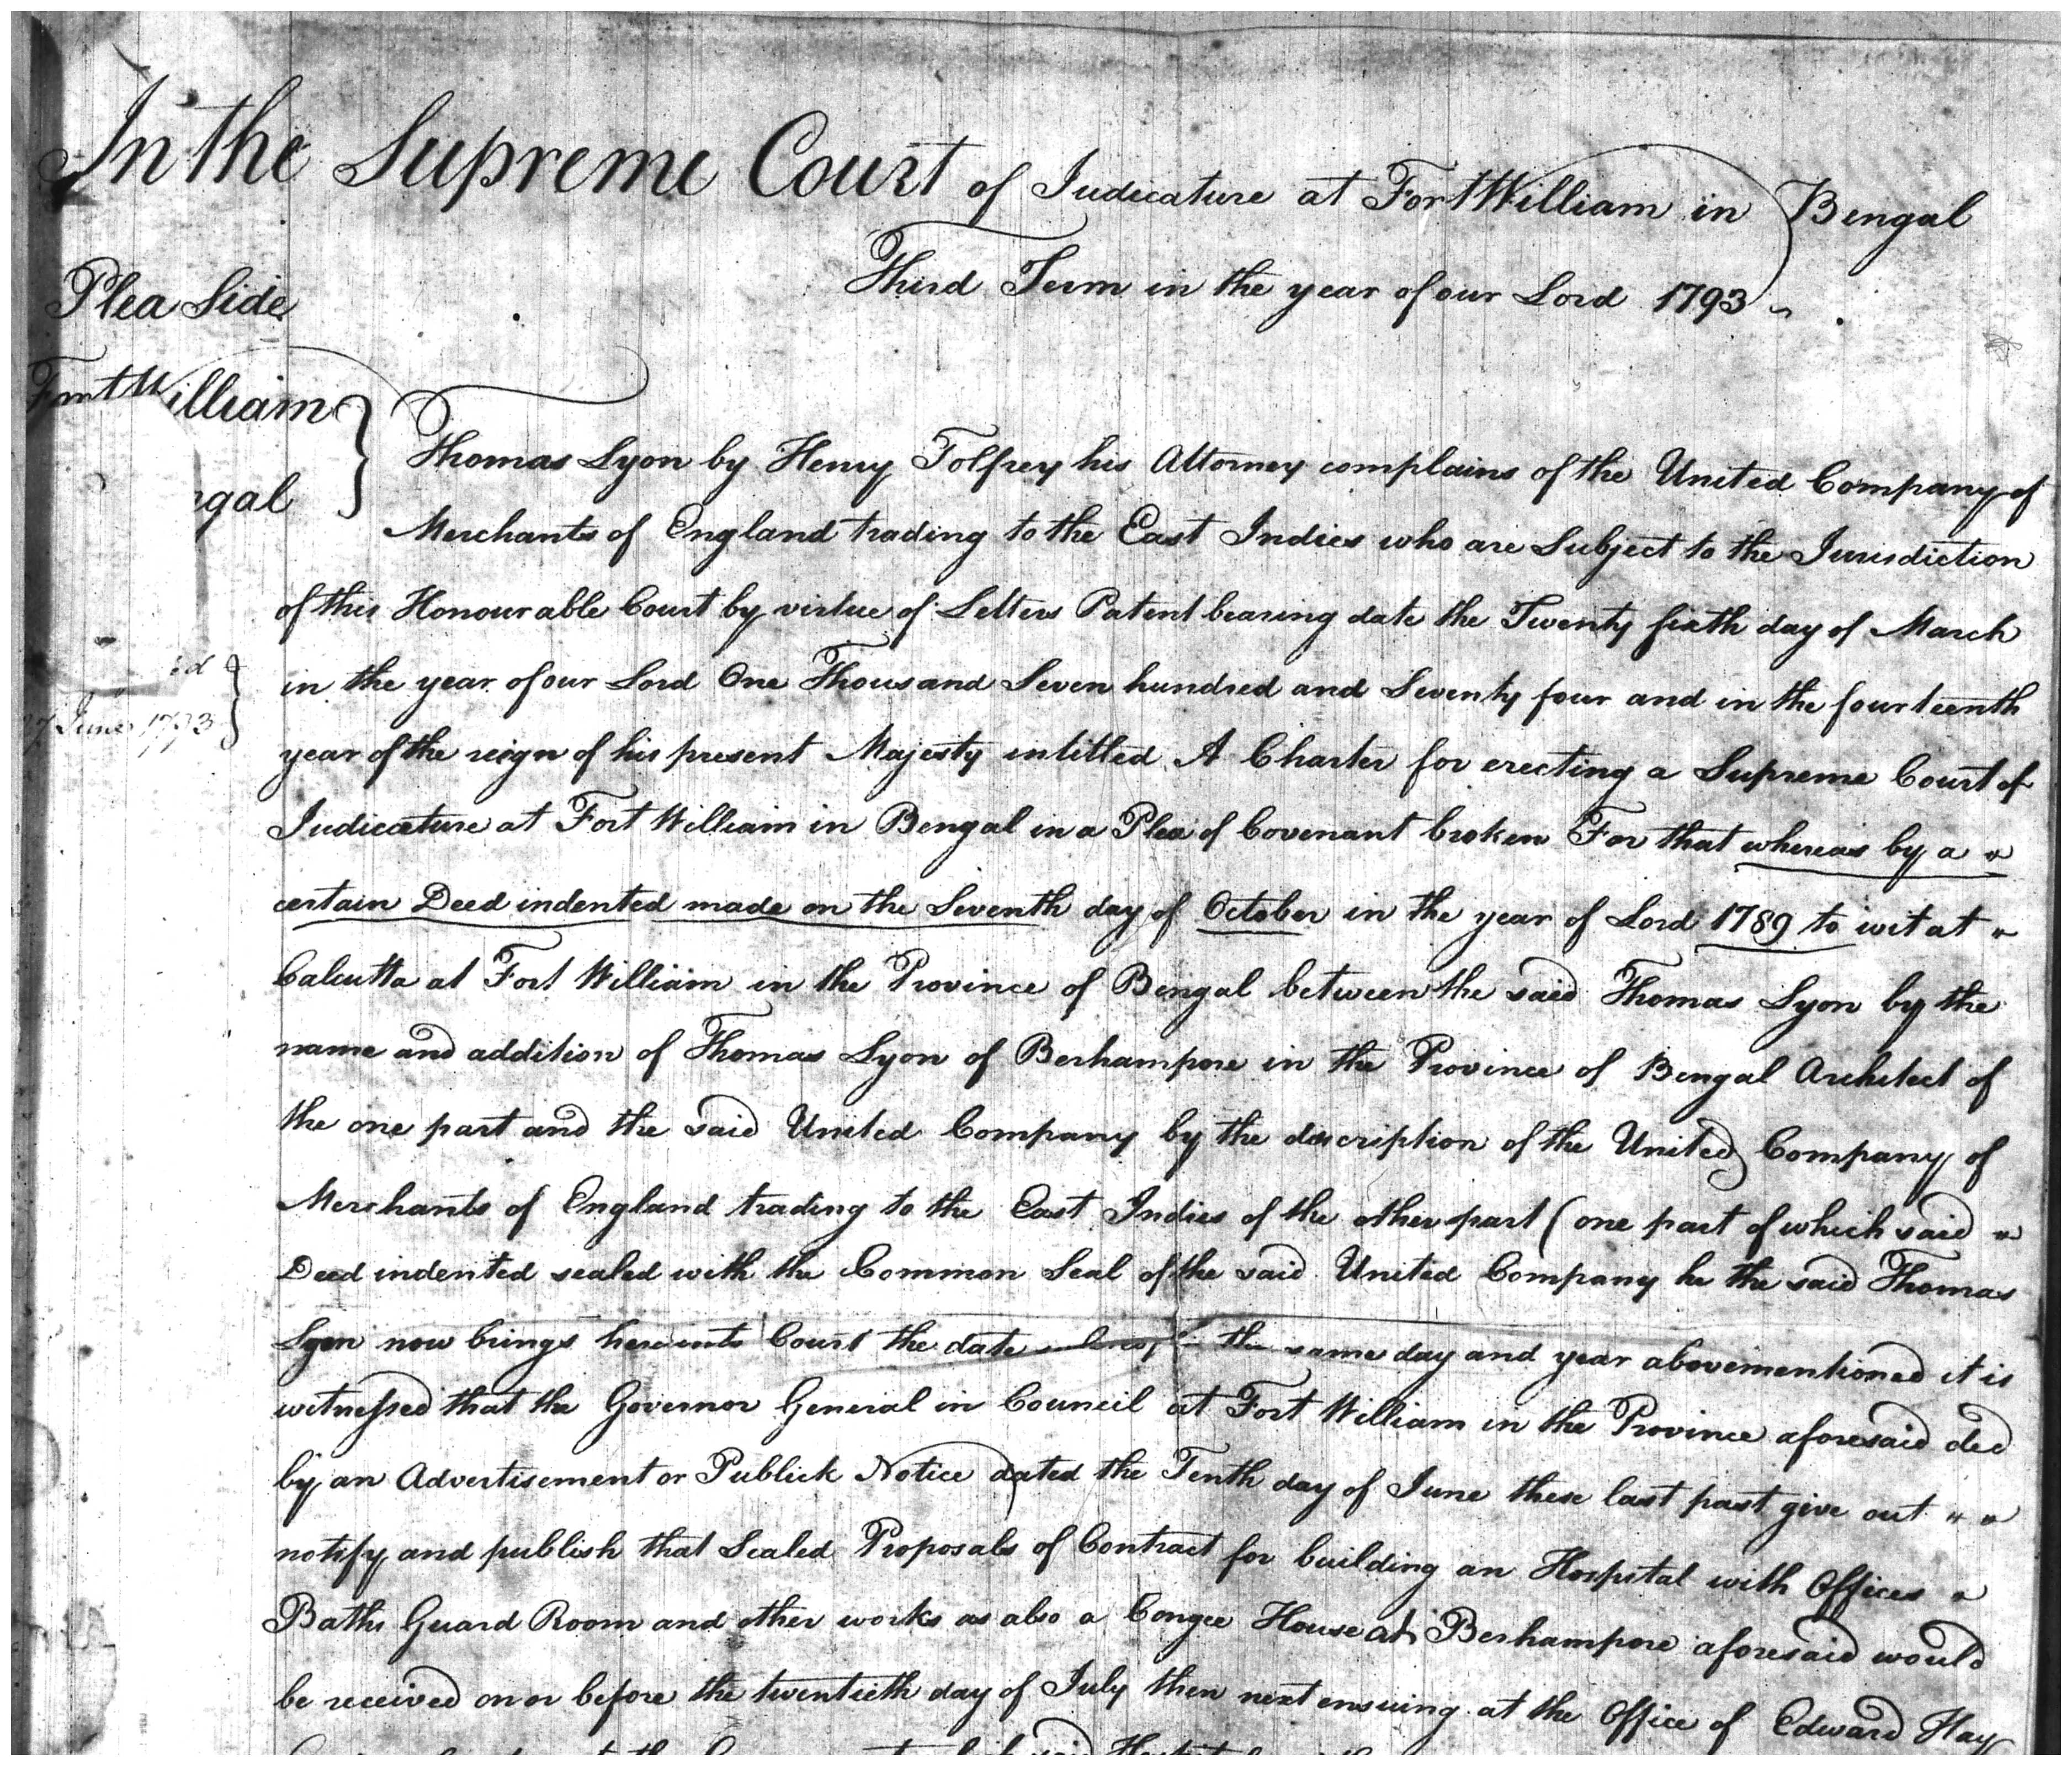 In the Supreme Court of Judicature at Fort William in Bengal
Third Term in the year of our Lord 1793
Plea Side
Fort William
Thomas Lyon by Henry Tolfrey his Attorney complains of the United Company of
Merchants of England trading to the East Indies who are Subject to the Jurisdiction
of this Honourable Court by virtue of Letters Patent bearing date the Twenty sixth day of March
in the year of our Lord One Thousand Seven hundred and Seventy four and in the fourteenth
27 June 1793
year of the reign of his present Majesty intitled A Charter for erecting a Supreme Court of
Judicature at Fort William in Bengal in a Plea of Covenant broken For that whereas by a "
certain Deed indented made on the Seventh day of October in the year of Lord 1789 to wit at "
Calcutta at Fort William in the Province of Bengal between the said Thomas Lyon by the
name and addition of Thomas Lyon of Berhampore in the Province of Bengal Architect of
the one part and the said United Company by the description of the United Company of
Merchants of England trading to the East Indies of the other part (one part of which said "
Deed indented sealed with the Common Seal of the said United Company he the said Thomas
Lyon now brings here into Court the date whereof is the same day and year abovementioned it is
witnessed that the Governor General in Council at Fort William in the Province aforesaid did
by an Advertisement or Publick Notice dated the Tenth day of June these last past give out " "
notify and publish that Sealed Proposals of Contract for building an Hospital with Offices "
Baths Guard Room and other works as also a Congee House at Berhampore aforesaid would
be received on or before the twentieth day of July then next ensuing at the Office of Edward Hay